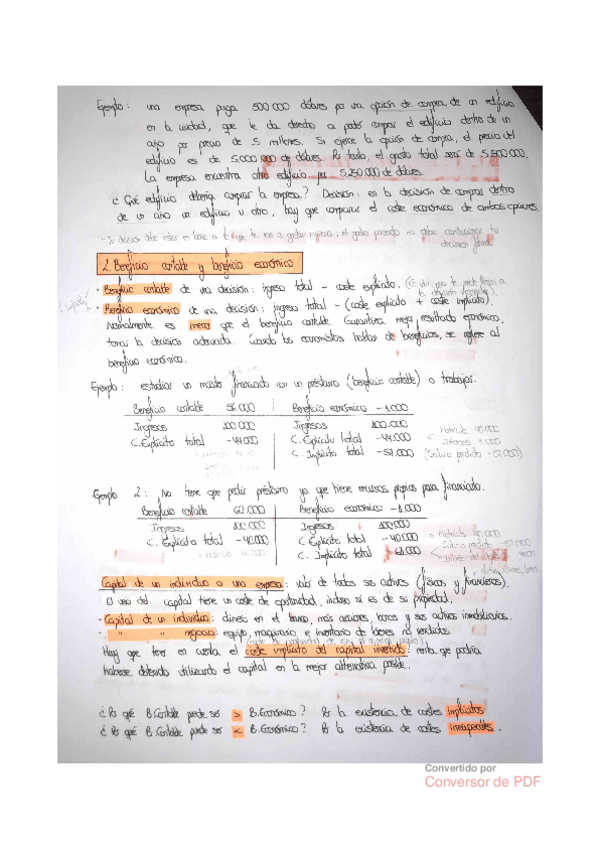 Ejemplo: una empresa paga 500.000 dólares por una opción de compra de un edificio
en la ciudad, que le da derecho a poder comprar el edificio dentro de un
año por precio de 5 millones. Si ejerce la opción de compra, el precio del
edificio es de 5.000.000 de dólares. Por tanto, el gasto total será de 5.500.000.
La empresa encuentra otro edificio por 5.250.000 de dólares.
¿Qué edificio debería comprar la empresa? Decisión: en la decisión de comprar dentro
de un año un edificio u otro, hay que comparar el coste económico de ambas opciones.
2. Beneficio contable y beneficio económico
· Beneficio contable de una decisión: ingreso total - coste explícito.
· Beneficio económico de una decisión: ingreso total - (coste explícito + coste implícito).
Normalmente es menor que el beneficio contable. Garantiza mejor resultado económico,
tomar la decisión adecuada. Cuando los economistas hablan de beneficios, se refiere al
beneficio económico.
Ejemplo: estudiar un máster financiado con un préstamo (beneficio contable) o trabajar.
Beneficio contable 56.000 Beneficio económico -1.000
Ingresos 100.000 Ingresos 100.000
C. Explícito total -44.000 C. Explícito total -44.000
C. Implícito total -57.000 (Salario perdido -57.000)
Ejemplo 2: No tiene que pedir préstamo ya que tiene recursos propios para financiarlo.
Beneficio contable 60.000 Beneficio económico -1.000
Ingresos 100.000 Ingresos 100.000
C. Explícito total -40.000 C. Explícito total -40.000
C. Implícito total 61.000
Capital de un individuo o una empresa: valor de todos sus activos (físicos y financieros).
El uso del capital tiene un coste de oportunidad, incluso si es de su propiedad.
- Capital de un individuo: dinero en el banco, más acciones, bonos y sus activos inmobiliarios.
- " " " negocio: equipo, maquinaria e inventario de bienes no vendidos.
Hay que tener en cuenta el coste implícito del capital invertido: renta que podría
haberse obtenido utilizando el capital en la mejor alternativa posible.
¿Por qué B. Contable puede ser > B. Económico? Por la existencia de costes implícitos
¿Por qué B. Contable puede ser < B. Económico? Por la existencia de costes irrecuperables.
Convertido por
Conversor de PDF